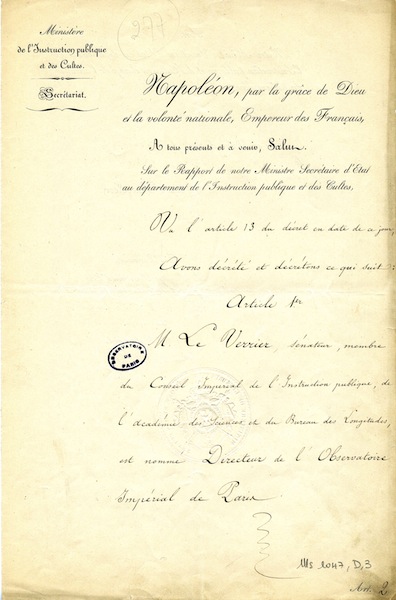 277
Ministère
de l'Instruction publique
et des Cultes.
Secrétariat.
Napoléon, par la grâce de Dieu
et la volonté nationale, Empereur des Français,
A tous présents et à venir, Salut.
Sur le Rapport de notre Ministre Secrétaire d'Etat
au département de l'Instruction publique et des Cultes,
Vu l'article 13 du décret en date de ce jour,
Avons décrété et décrétons ce qui suit:
Article 1er
M Le Verrier, sénateur, membre
OBSERVATOIRE
DE
PARIS
du Conseil Impérial de l'Instruction publique, de
l'académie des Sciences et du Bureau des Longitudes,
est nommé Directeur de l'Observatoire
Impérial de Paris
Ms 1047, D, 3
Art. 2